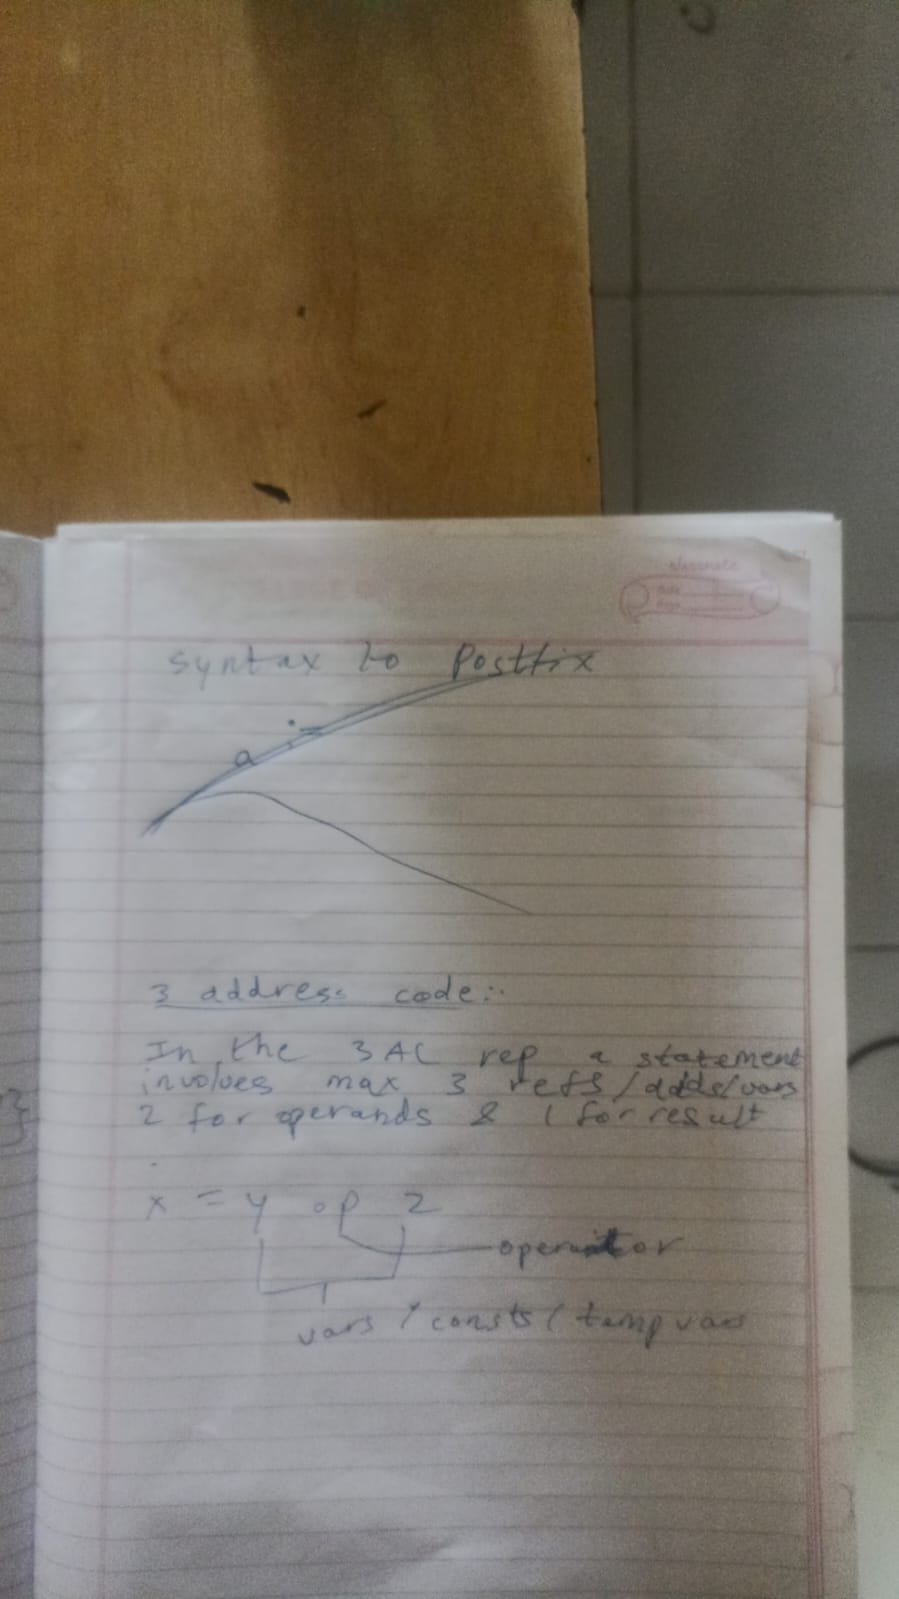 Classmate
Date
Page
syntax to Postfix
a :=
3 address code :-
In the 3AC rep a statement
involves max 3 refs/adds/vars
2 for operands & 1 for result
x = y op z
operator
vars / consts / temp vars